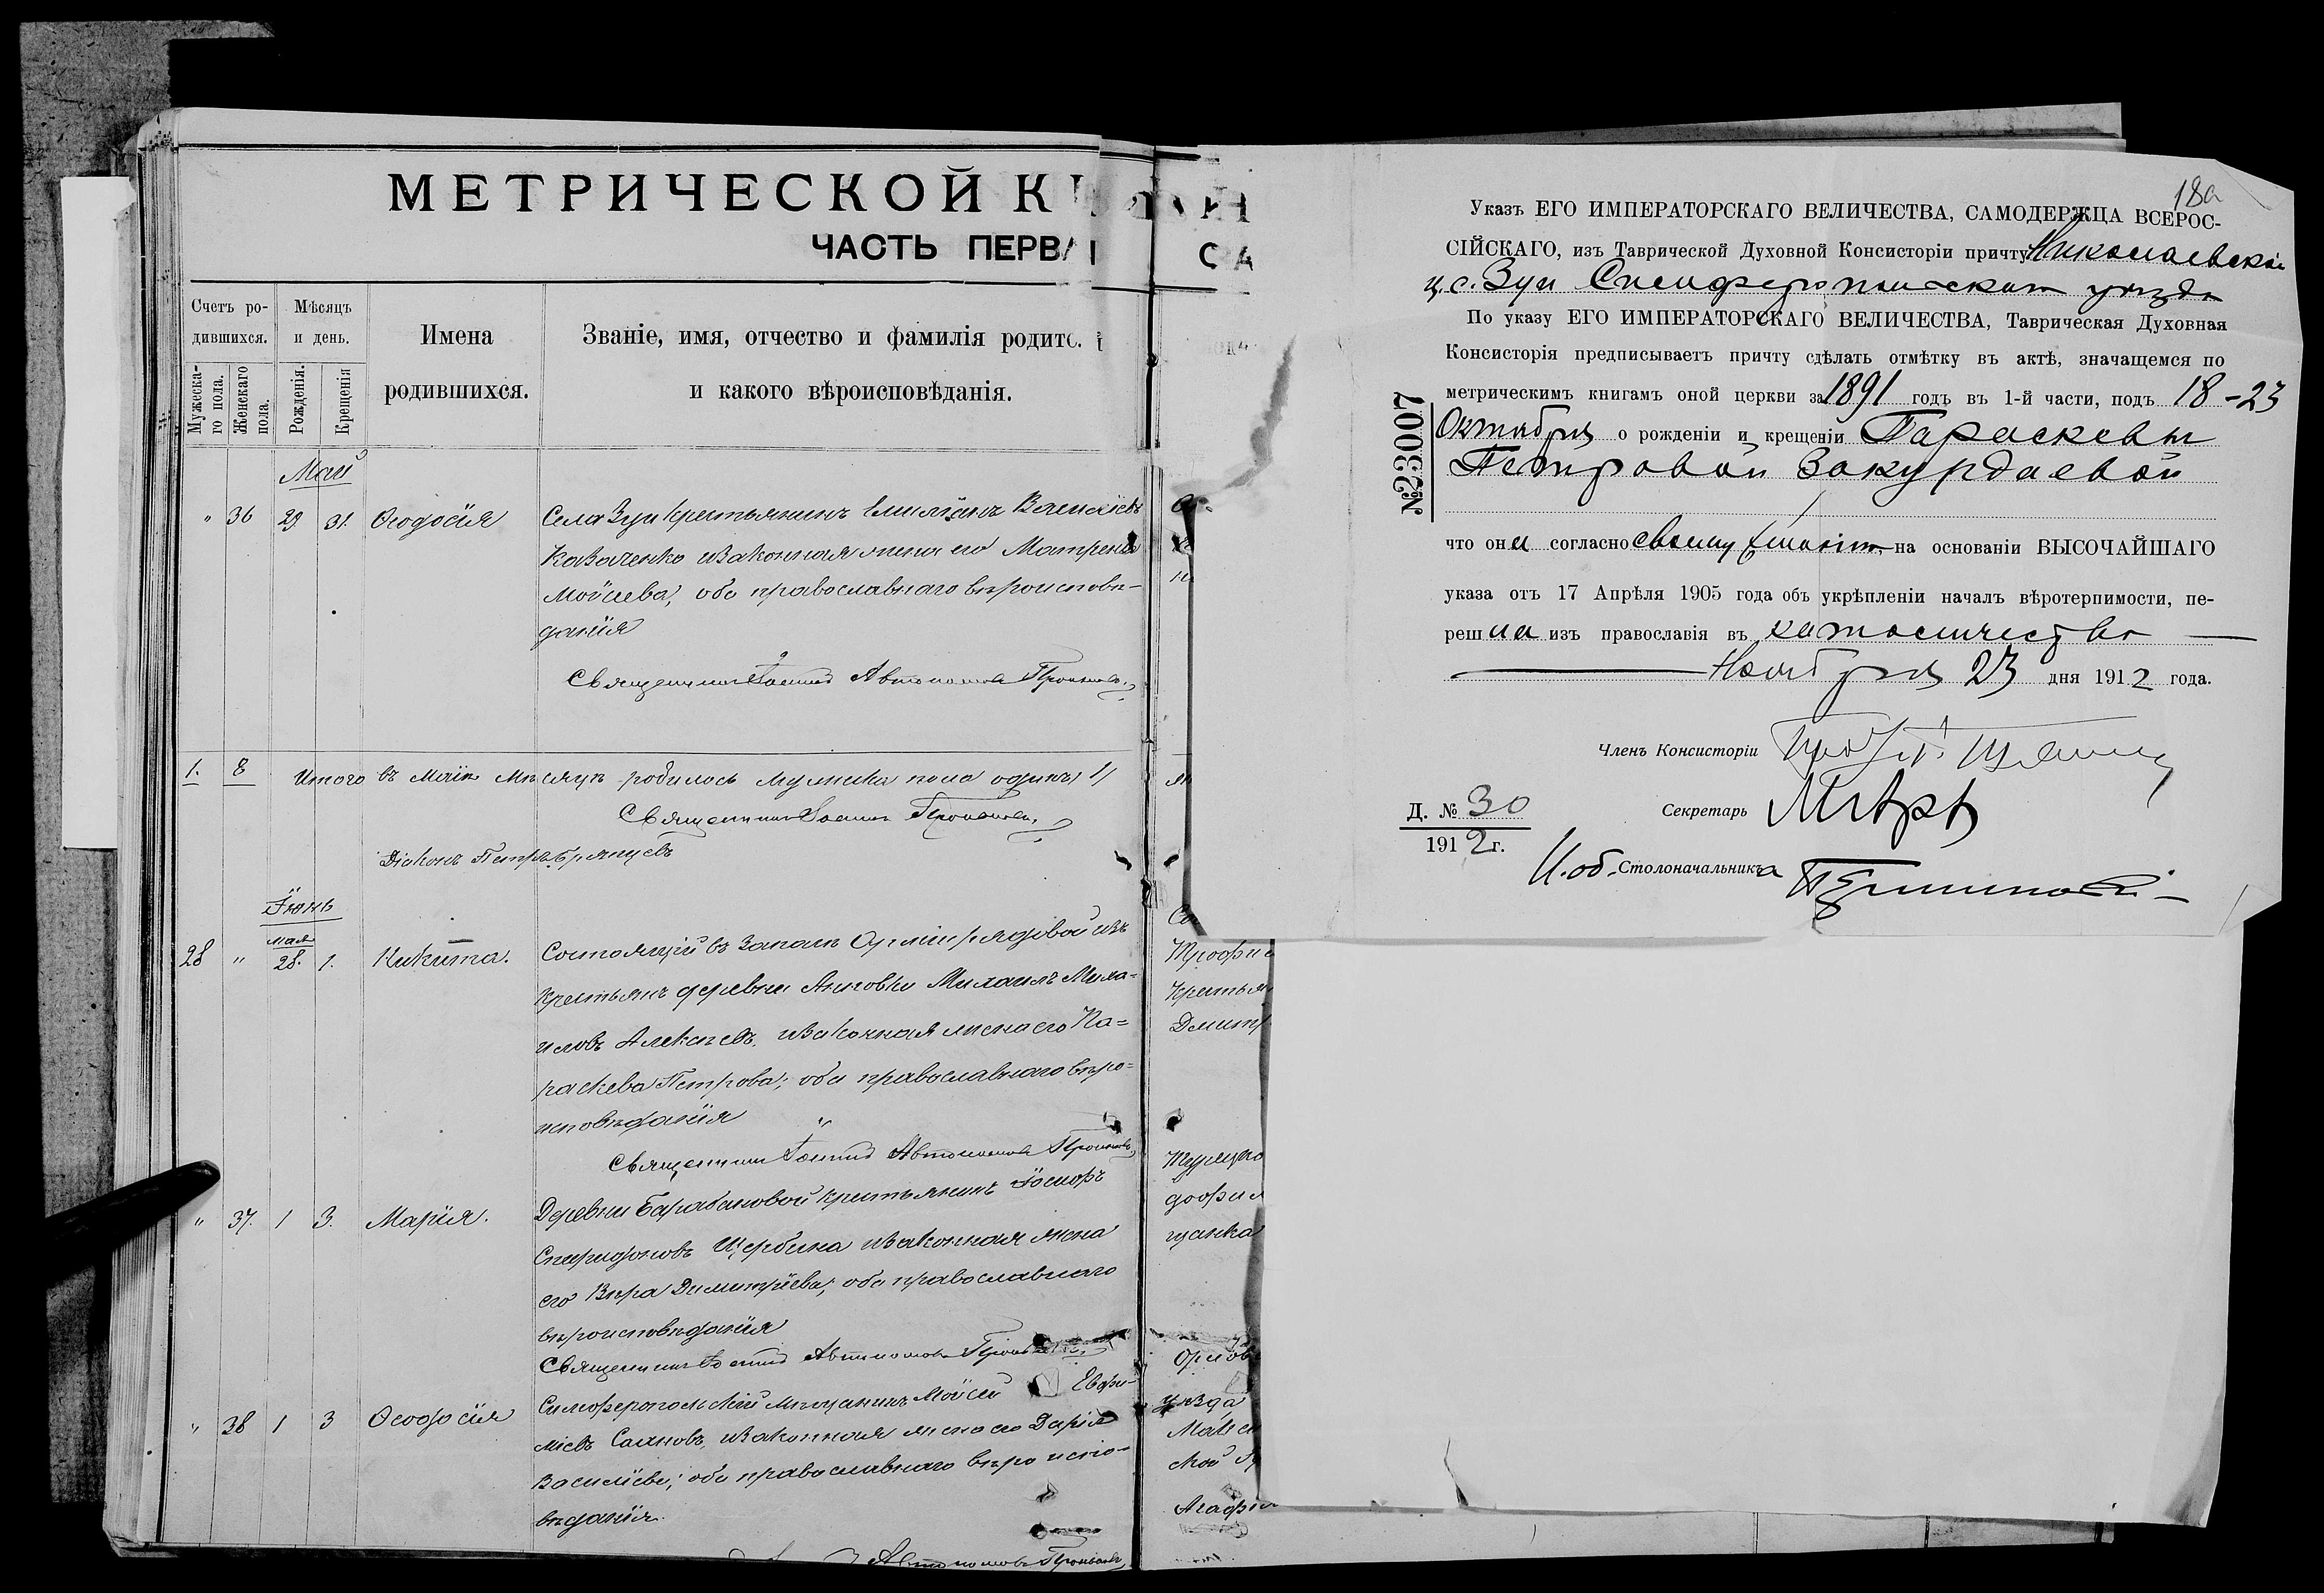 МЕТРИЧЕСКОЙ К
ЧАСТЬ ПЕРВА
Счетъ ро-
дившихся.
Мѣсяцъ
и день.
Мужеска-
го пола.
Женскаго
пола.
Рожденія.
Крещенія
Имена
родившихся.
Званіе, имя, отчество и фамилія родите
и какого вѣроисповѣданія.
Май
" 36 29 31. Ѳеодосія
Села Зуи крестьянинъ Емиліанъ
Коваленко и законная жена его Матрена
Мойсева; оба православнаго вѣроисповѣ-
данія
Священникъ Автономовъ
1. 8 Итого въ Маѣ мѣсяцѣ родилось мужска пола одинъ, 1,
Священникъ
Діаконъ Петръ Брянцевъ
Іюнь
мая
28 " 28. 1. Никита.
Состоящій въ запасѣ Арміи рядовой изъ
крестьянъ деревни Михаилъ Миха=
иловъ Алексѣевъ, и законная жена его Па=
раскева Петрова; оба православнаго вѣро=
исповѣданія
Священникъ Автономовъ
" 37. 1 3. Марія.
Деревни Барабановой крестьянинъ Іосифъ
Спиридоновъ Щербина и законная жена
его Вѣра Димитріева; оба православнаго
вѣроисповѣданія
Священникъ Автономовъ
" 38 1 3 Ѳеодосія
Симферопольскій мѣщанинъ Мойсей Евфи-
міевъ и законная жена его Дарія
Василіева; оба православнаго вѣроиспо-
вѣданія.
Автономовъ
С А
Трофи
Крестья
Дмитр
щанка
уѣзда
18а
Указъ ЕГО ИМПЕРАТОРСКАГО ВЕЛИЧЕСТВА, САМОДЕРЖЦА ВСЕРОС-
СІЙСКАГО, изъ Таврической Духовной Консисторіи причту Николаевской
ц. с. Зуи Симферопольскаго уѣзда
По указу ЕГО ИМПЕРАТОРСКАГО ВЕЛИЧЕСТВА, Таврическая Духовная
Консисторія предписываетъ причту сдѣлать отмѣтку въ актѣ, значащемся по
метрическимъ книгамъ оной церкви за 1891 годъ въ 1-й части, подъ 18 - 23
Октября о рожденіи и крещеніи Параскевы
Петровой Закурдаевой
что она согласно своему желанію, на основаніи ВЫСОЧАЙШАГО
указа отъ 17 Апрѣля 1905 года объ укрѣпленіи началъ вѣротерпимости, пе-
решла изъ православія въ католичество
Ноября 23 дня 1912 года.
№23007
Членъ Консисторіи
Секретарь
Д. № 30
1912 г.
И. об. Столоначальника